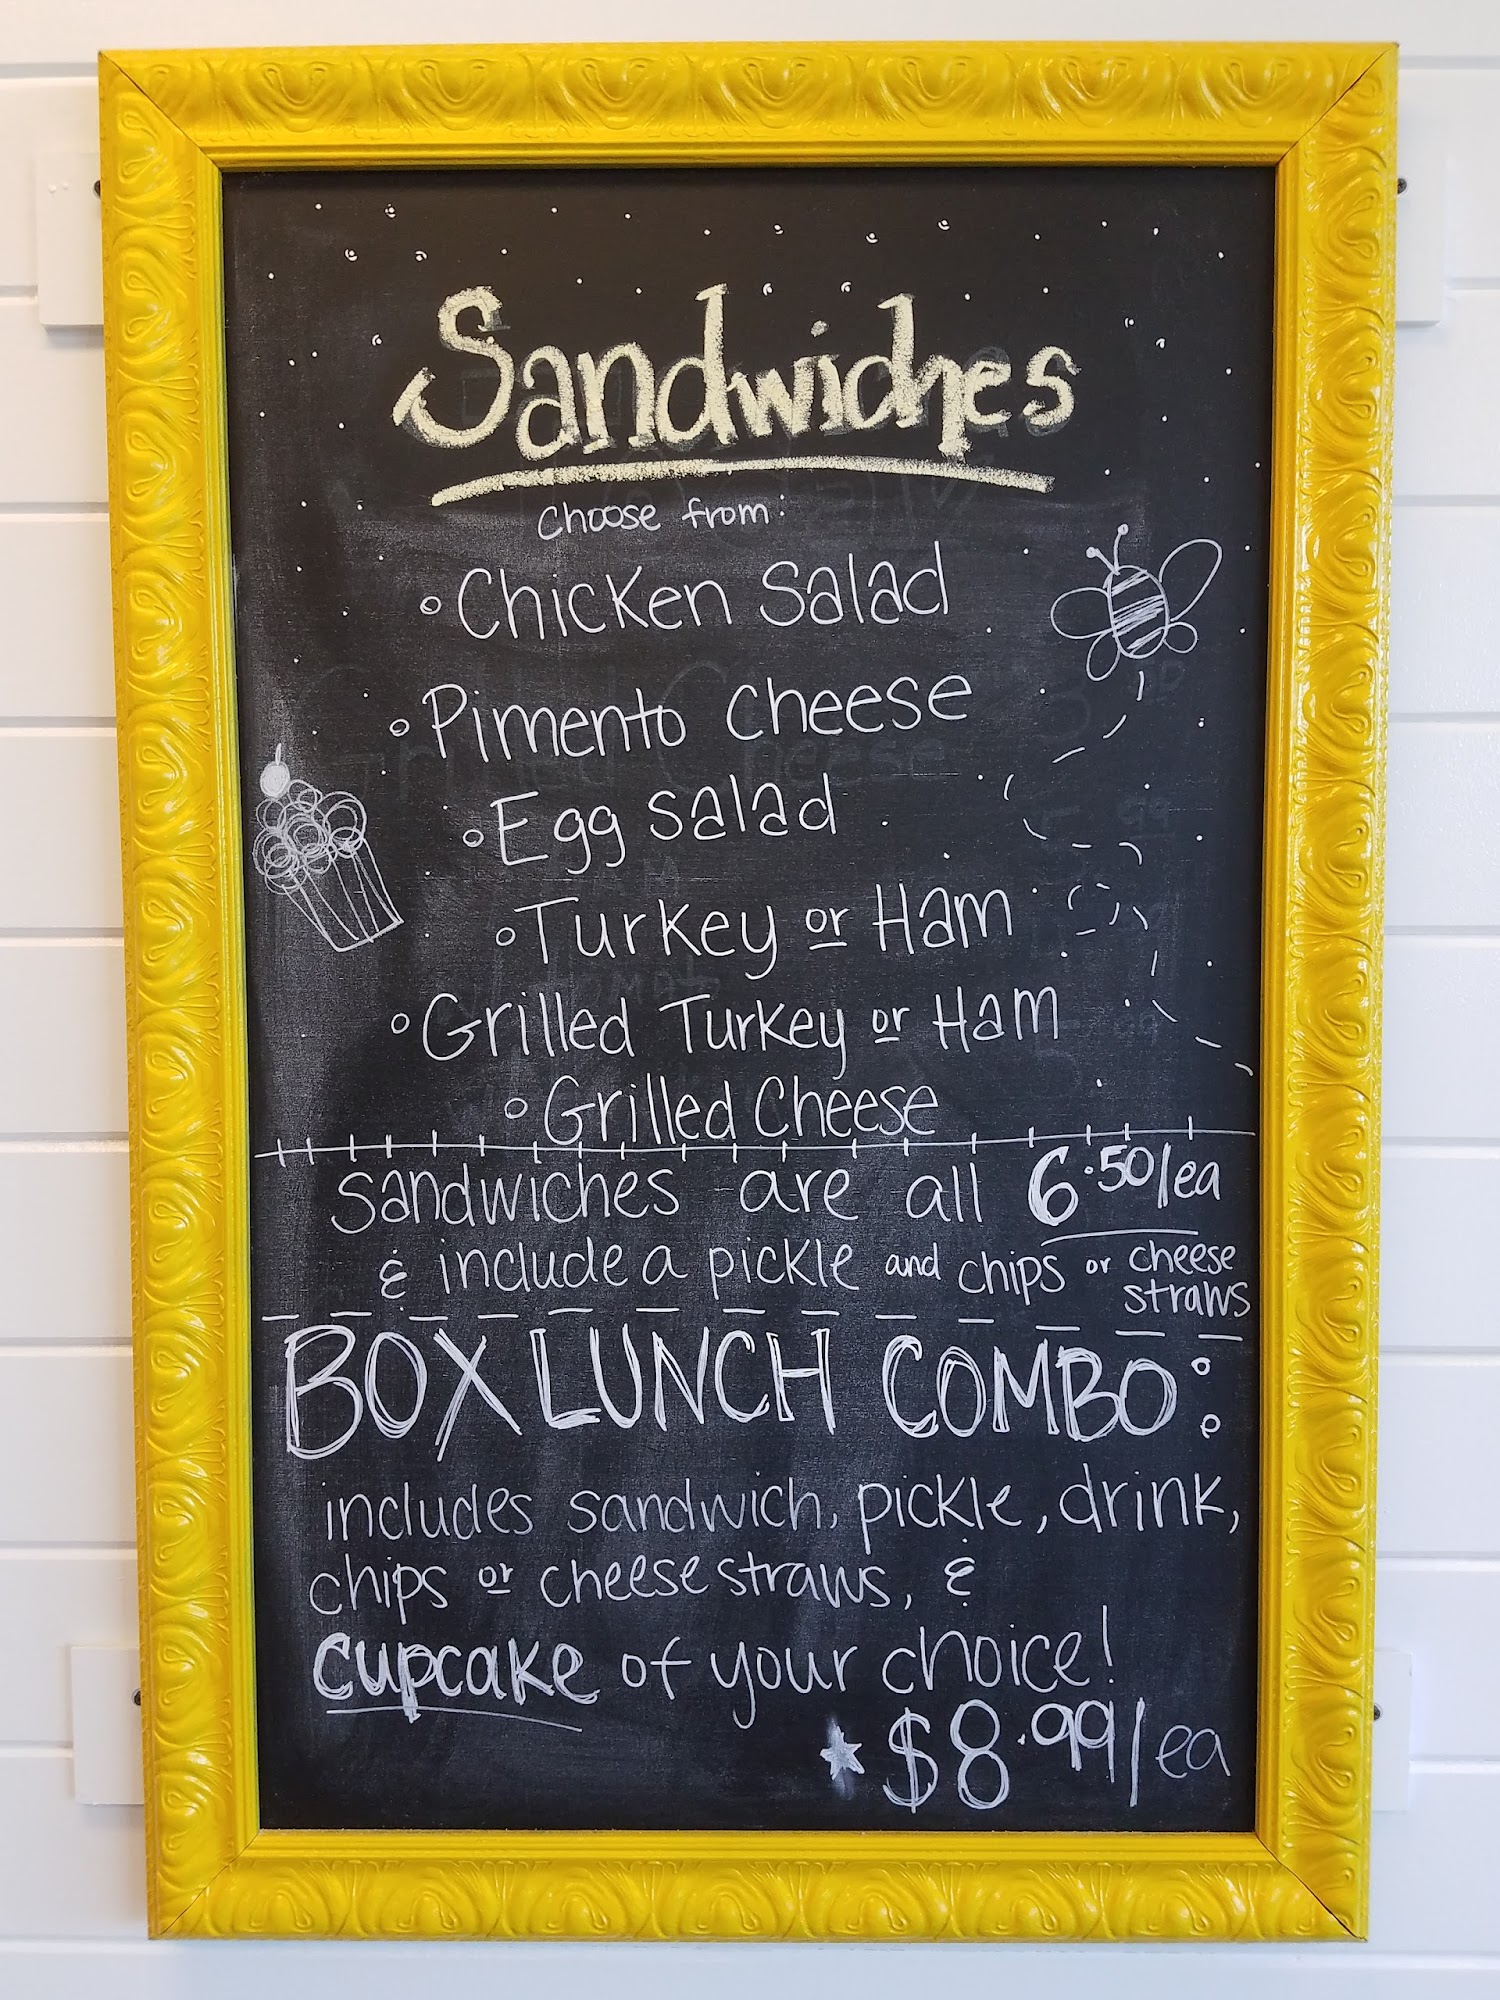 Sandwiches
Choose from:
◦ Chicken Salad
◦ Pimento Cheese
◦ Egg Salad
◦ Turkey or Ham
◦ Grilled Turkey or Ham
◦ Grilled Cheese
Sandwiches are all 6.50/ea
& include a pickle and chips or cheese straws
BOX LUNCH COMBO:
includes sandwich, pickle, drink,
chips or cheese straws, &
cupcake of your choice!
$8.99/ea